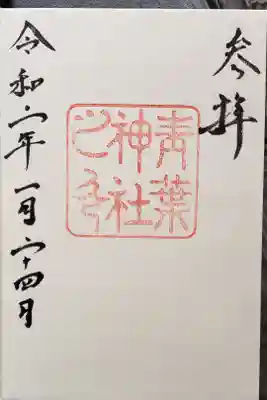 参拝
青葉
神社
之印
令和六年一月二十四日